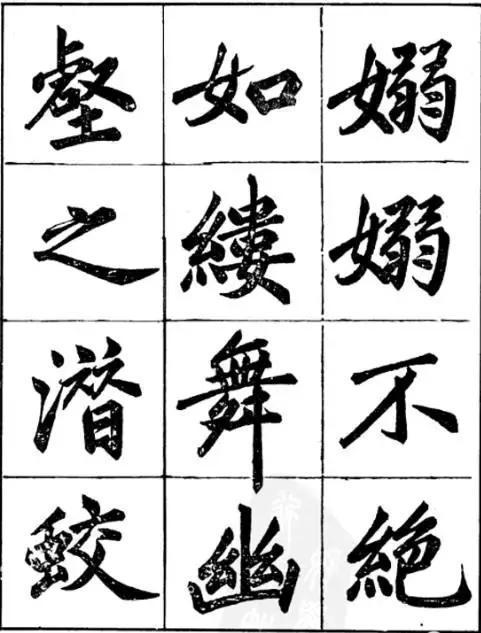 嫋嫋不絶
如縷舞幽
壑之潛蛟